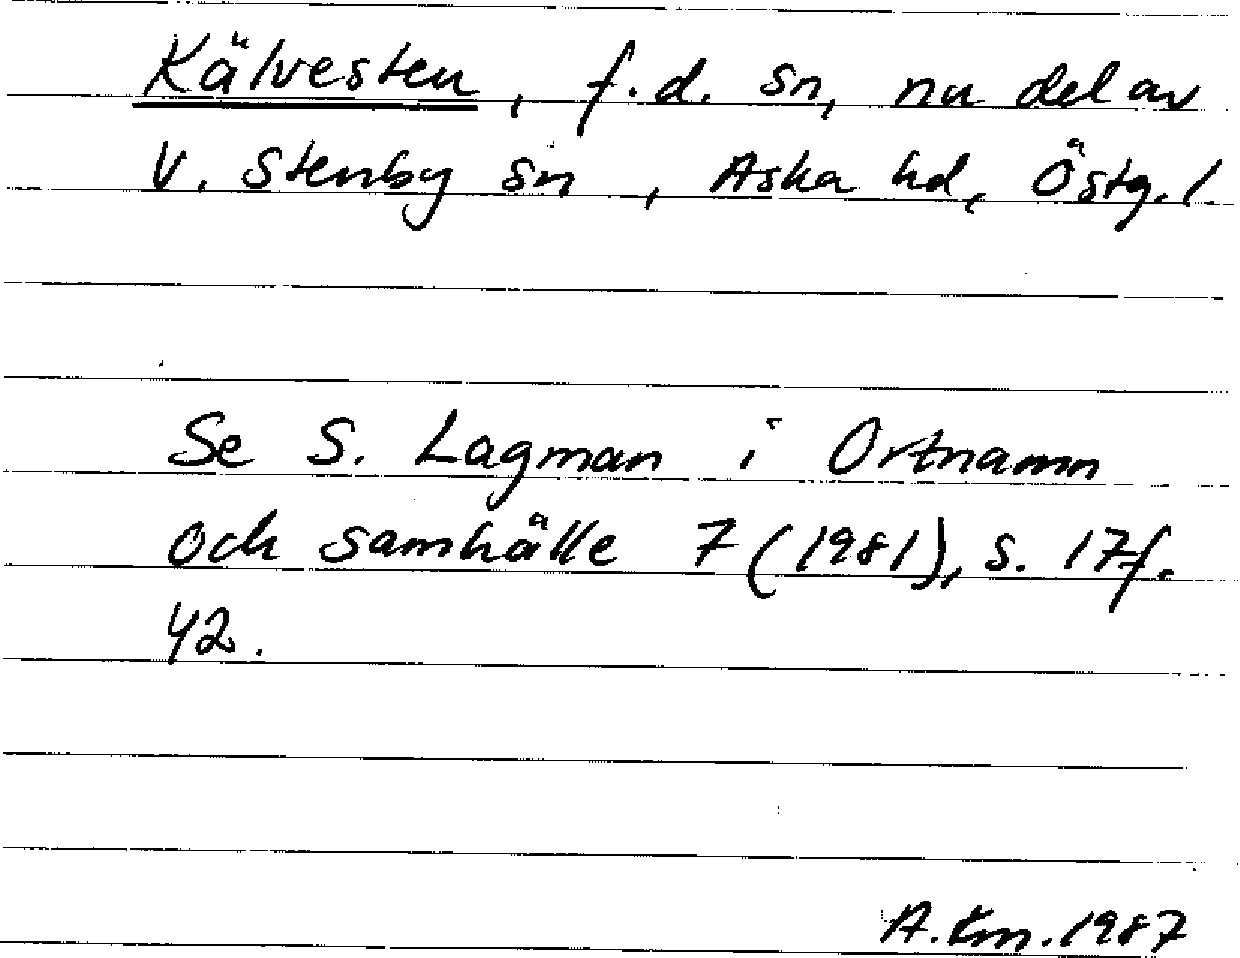 Kälvesten, f.d. sn, nu del av
V. Stenby sn, Aska hd, Östg. l.
Se S. Lagman i Ortnamn
och samhälle 7 (1981), s. 17f.
42.
A. Em. 1987